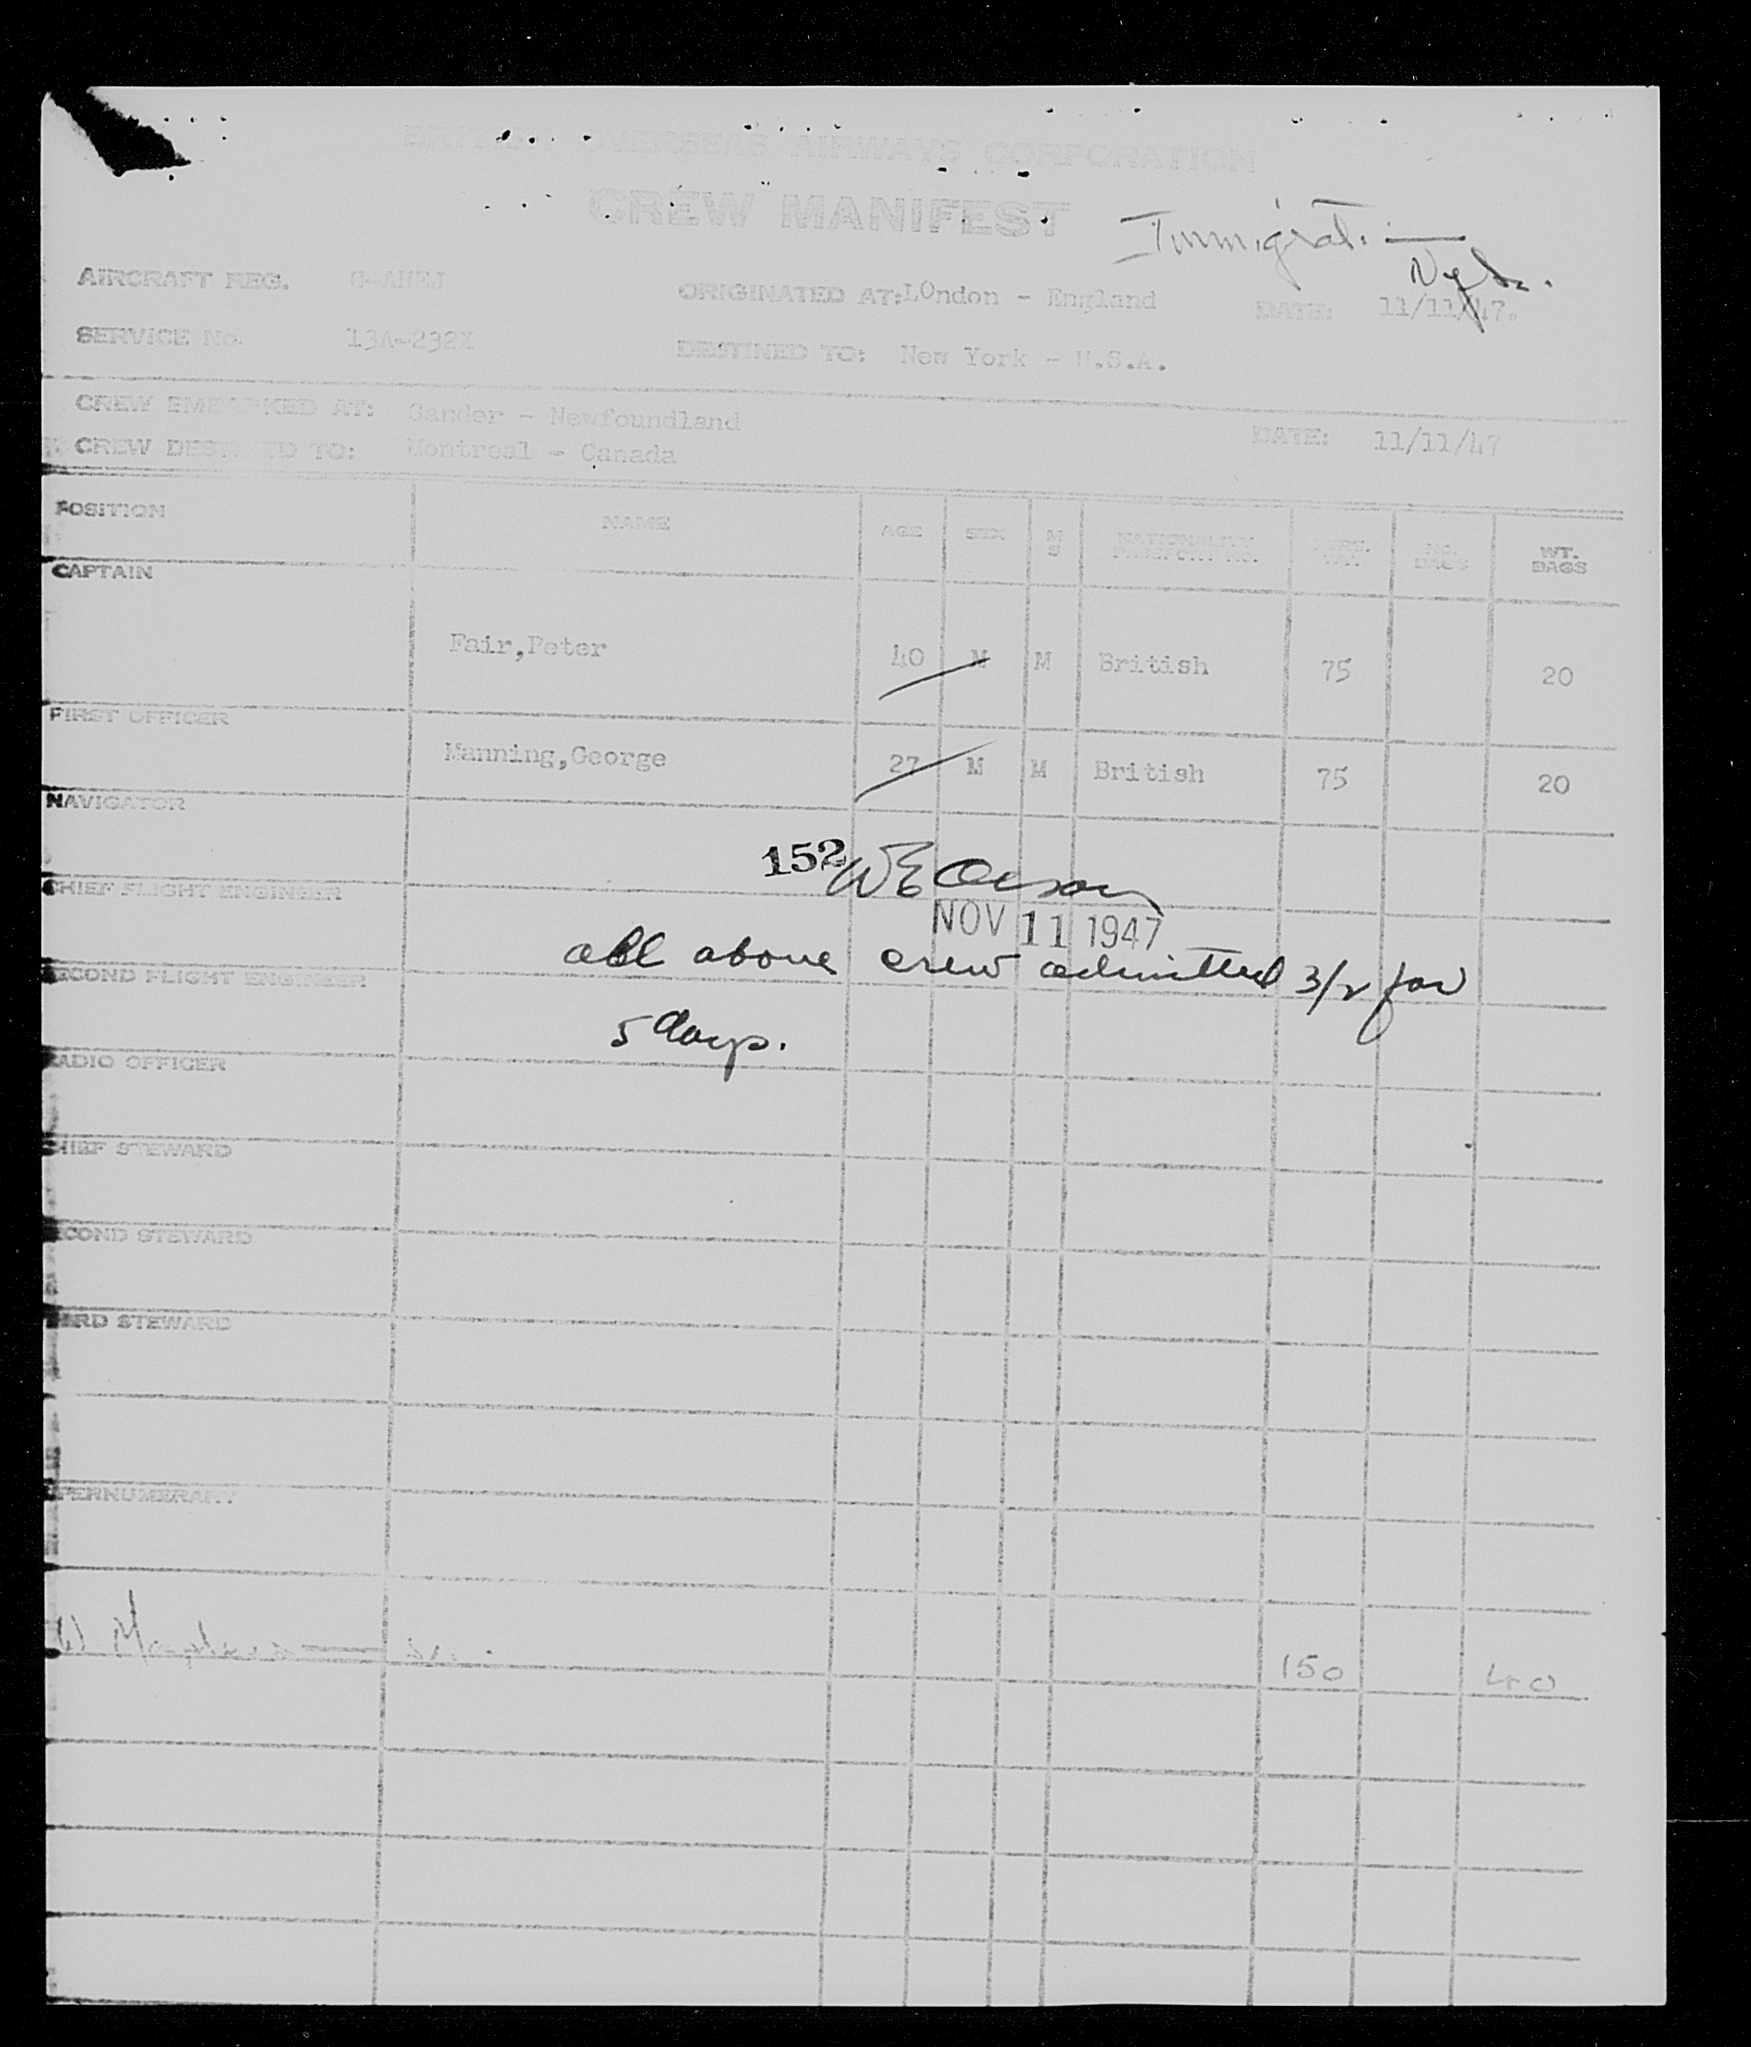 BRITISH OVERSEAS AIRWAYS CORPORATION
CREW MANIFEST
Immigrat.
Nfld.
AIRCRAFT REG. G-AHEJ ORIGINATED AT: LOndon - England DATE: 11/11/47.
SERVICE No. 13A-232X DESTINED TO: New York - U.S.A.
CREW EMBARKED AT: Gander - Newfoundland
DATE: 11/11/47
CREW DESTINED TO: Montreal - Canada
POSITION NAME AGE SEX M S NATIONALITY PASSPORT NO. NO. BAGS WT. BAGS
CAPTAIN
Fair,Peter 40 M M British 75 20
FIRST OFFICER
Manning,George 27 M M British 75 20
NAVIGATOR
152 WE
CHIEF FLIGHT ENGINEER
NOV 11 1947
all above crew admitted 3/2 for
SECOND FLIGHT ENGINEER
5 days.
RADIO OFFICER
CHIEF STEWARD
SECOND STEWARD
THIRD STEWARD
SUPERNUMERARY
150 40